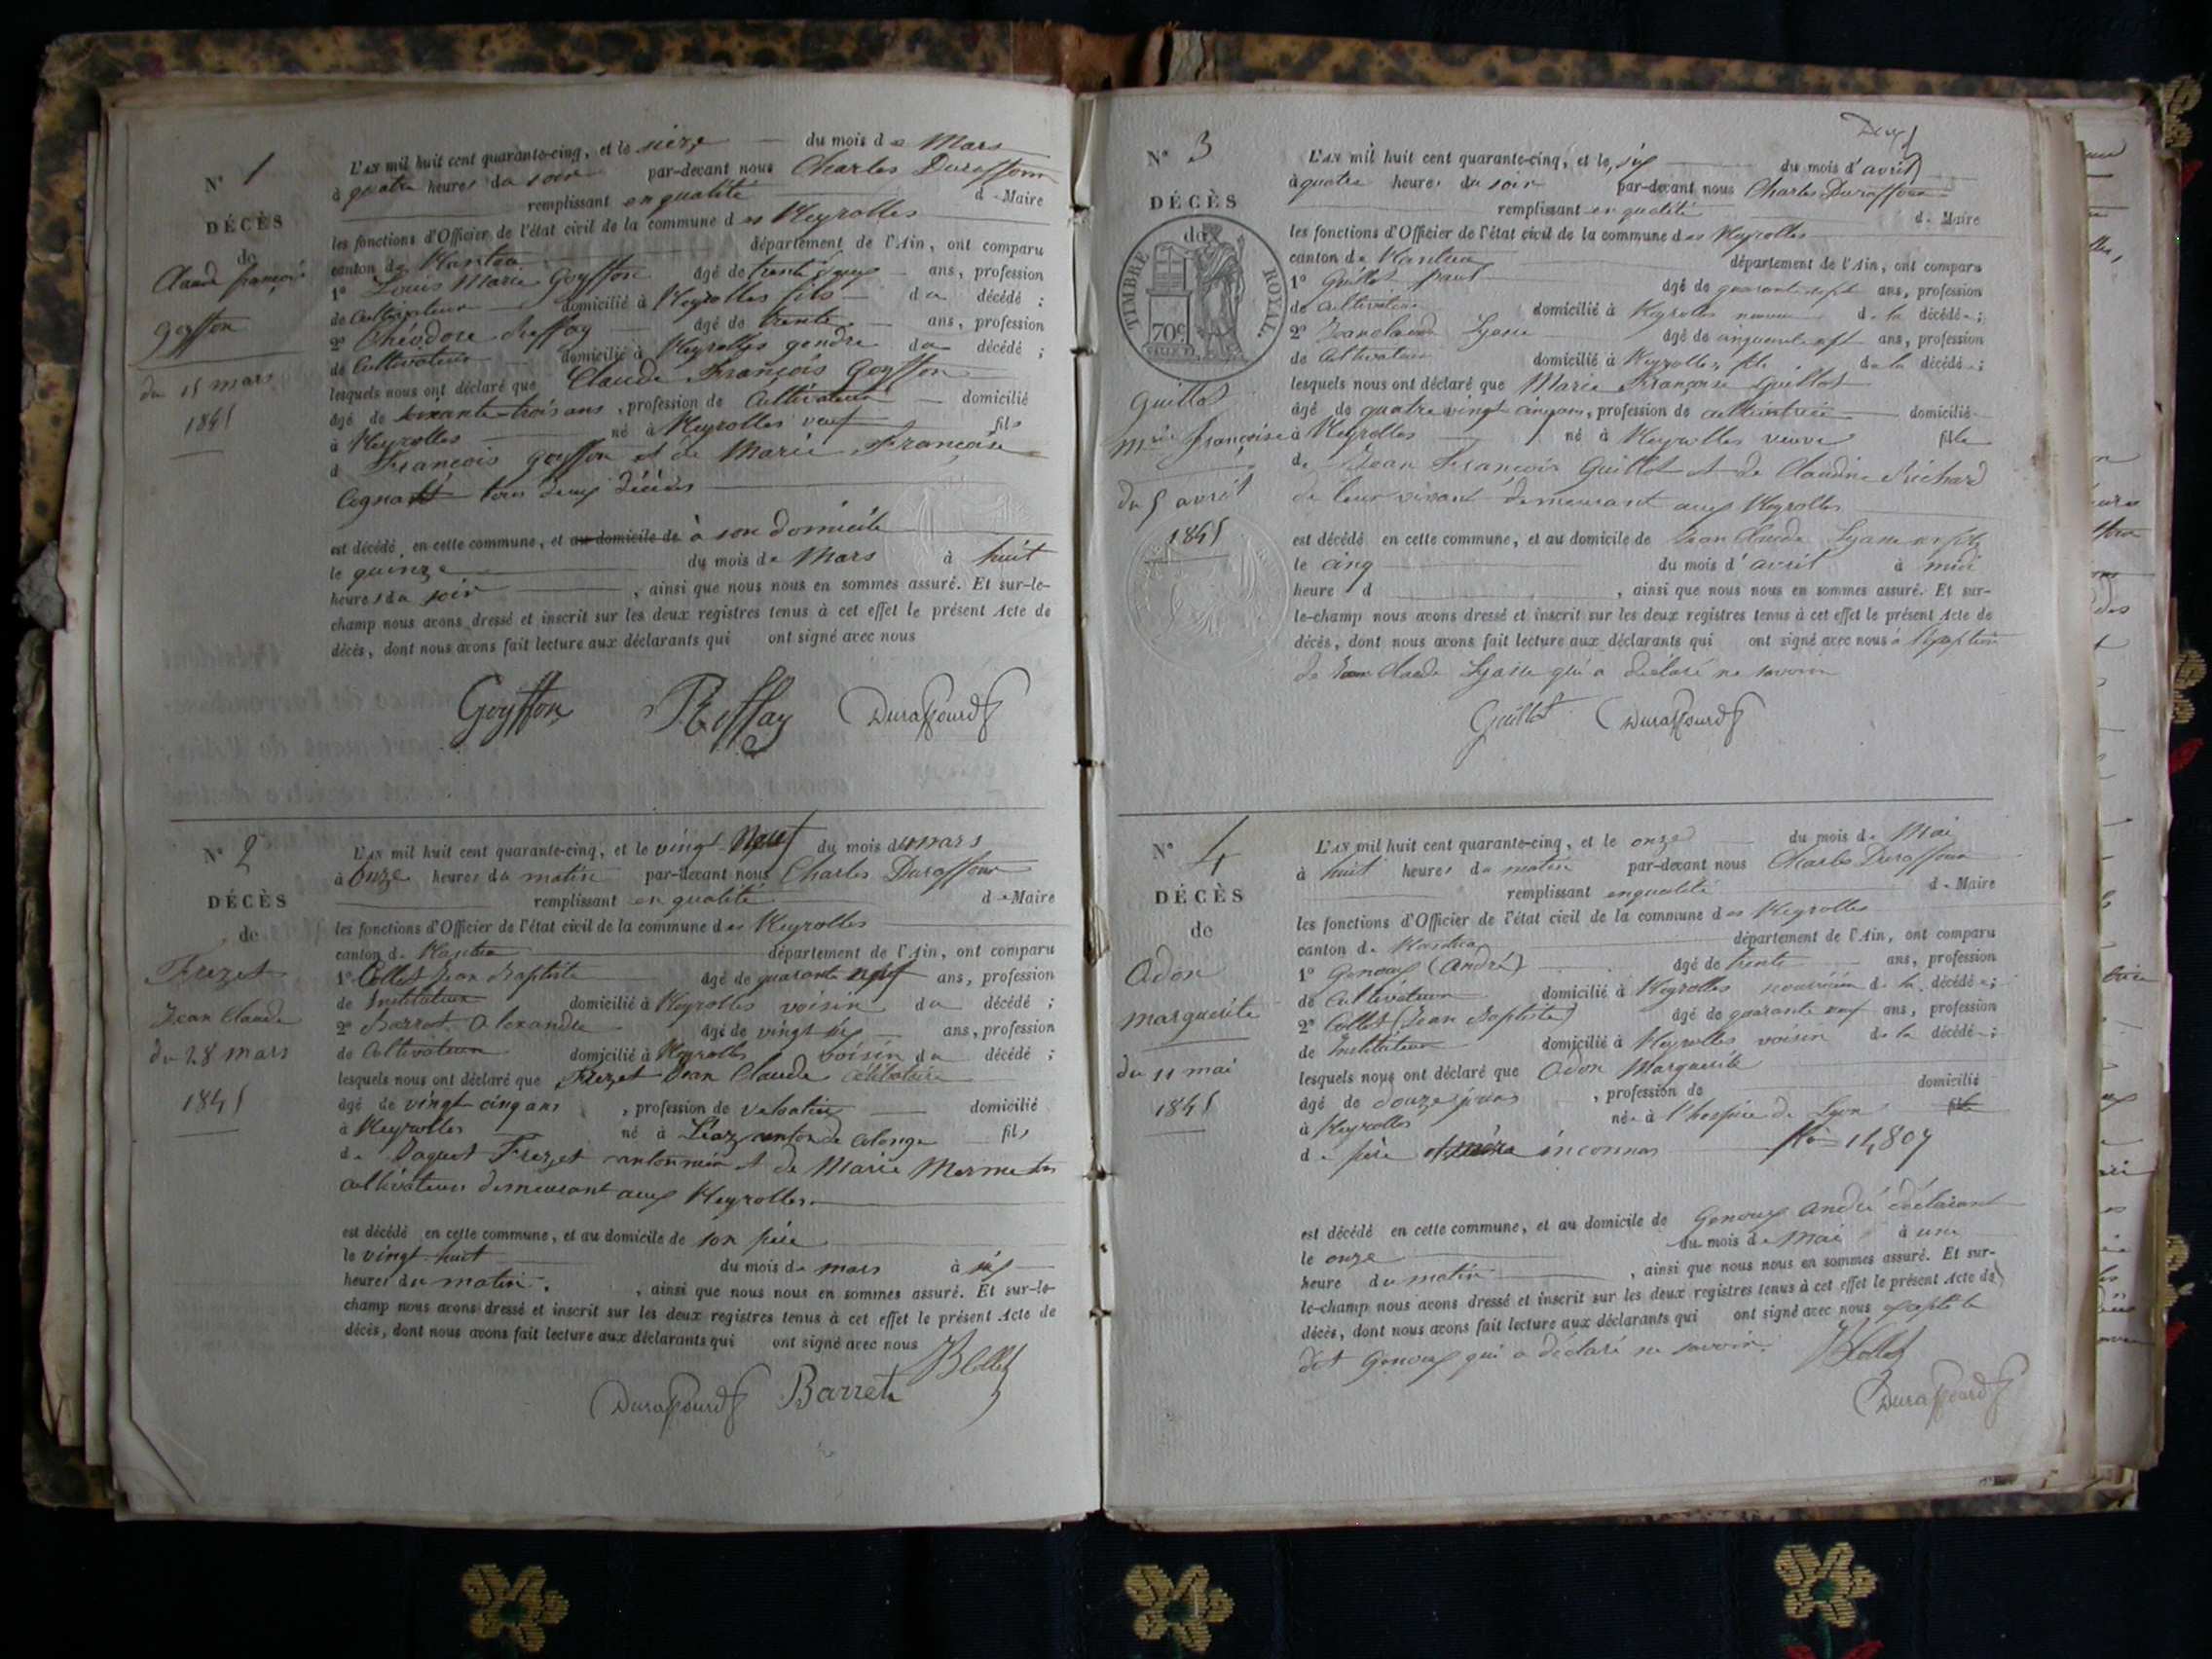 N° 1
DÉCÈS
de
Claude françois
goyffon
du 15 mars
1845
L'AN mil huit cent quarante-cinq, et le seize du mois de Mars
à quatre heures du soir par-devant nous Charles Duraffour
remplissant en qualité de Maire
les fonctions d'Officier de l'état civil de la commune des Neyrolles
canton de Nantua département de l'Ain, ont comparu
1° Louis Marie Goyffon âgé de trente deux ans, profession
de Cultivateur domicilié à Neyrolles fils du décédé ;
2° Théodore Reffay âgé de trente ans, profession
de Cultivateur domicilié à Neyrolles gendre du décédé ;
lesquels nous ont déclaré que Claude François Goyffon
âgé de soixante-trois ans, profession de Cultivateur domicilié
à Neyrolles né à Neyrolles veuf fils
d François goyffon et de Marie Françoise
tous deux décédés
est décédé en cette commune, et au domicile de à son domicile
le quinze du mois de Mars à huit
heures du soir, ainsi que nous nous en sommes assuré. Et sur-le-
champ nous avons dressé et inscrit sur les deux registres tenus à cet effet le présent Acte de
décès, dont nous avons fait lecture aux déclarants qui ont signé avec nous
Goyffon Reffay Duraffourd
N° 2
DÉCÈS
de
Frezet
Jean Claude
du 28 mars
1845
L'AN mil huit cent quarante-cinq, et le vingt-Neuf du mois de mars
à Onze heures du matin par-devant nous Charles Duraffour
remplissant en qualité de Maire
les fonctions d'Officier de l'état civil de la commune des Neyrolles
canton de Nantua département de l'Ain, ont comparu
1° Collet Jean Baptiste âgé de quarante neuf ans, profession
de Instituteur domicilié à Neyrolles voisin du décédé ;
2° Barret Alexandre âgé de vingt six ans, profession
de Cultivateur domicilié à Neyrolles voisin du décédé ;
lesquels nous ont déclaré que Frezet Jean Claude célibataire
âgé de vingt cinq ans, profession de domicilié
à Neyrolles né à Léaz canton de Colonge fils
de Jaques Frezet cantonnier et de Marie
cultivateurs demeurant aux Neyrolles.
est décédé en cette commune, et au domicile de son père
le vingt-huit du mois de mars à six
heures du matin, ainsi que nous nous en sommes assuré. Et sur-le-
champ nous avons dressé et inscrit sur les deux registres tenus à cet effet le présent Acte de
décès, dont nous avons fait lecture aux déclarants qui ont signé avec nous
Duraffourd Barret JBCollet
Deux
N° 3
DÉCÈS
de
TIMBRE ROYAL.
70c
Guillot
Mrie françoise
du 5 avril
1845
L'AN mil huit cent quarante-cinq, et le, six du mois d'avril
à quatre heures du soir par-devant nous Charles Duraffour
remplissant en qualité de Maire
les fonctions d'Officier de l'état civil de la commune des Neyrolles
canton de Nantua département de l'Ain, ont comparu
1° Guillot paul âgé de quarante sept ans, profession
de Cultivateur domicilié à Neyrolles neveu de la décédée ;
2° Jean claude âgé de cinquante sept ans, profession
de Cultivateur domicilié à Neyrolles fils de la décédée ;
lesquels nous ont déclaré que Marie Françoise Guillot
âgé de quatre vingt cinq ans, profession de cultivatrice domicilié
à Neyrolles né à Neyrolles veuve fille
de Jean François Guillot et de Claudine Richard
de leur vivant demeurant aux Neyrolles
est décédé en cette commune, et au domicile de Jean Claude son fils
le cinq du mois d'avril à midi
heure d, ainsi que nous nous en sommes assuré. Et sur-
le-champ nous avons dressé et inscrit sur les deux registres tenus à cet effet le présent Acte de
décès, dont nous avons fait lecture aux déclarants qui ont signé avec nous à l'exception
de Jean Claude qui a déclaré ne savoir
Guillot Duraffourd
N° 4
DÉCÈS
de
Odon
marguerite
du 11 mai
1845
L'AN mil huit cent quarante-cinq, et le onze du mois de Mai
à huit heures du matin par-devant nous Charles Duraffour
remplissant en qualité de Maire
les fonctions d'Officier de l'état civil de la commune des Neyrolles
canton de Nantua département de l'Ain, ont comparu
1° Genoux (André) âgé de trente ans, profession
de Cultivateur domicilié à Neyrolles de la décédée ;
2° Collet (Jean Baptiste) âgé de quarante neuf ans, profession
de Instituteur domicilié à Neyrolles voisin de la décédée ;
lesquels nous ont déclaré que Odon Marguerite
âgé de douze jours, profession de domicilié
à Neyrolles née à l'hospice de Lyon fils
de père et mère inconnus
est décédé en cette commune, et au domicile de Genoux André déclarant
le onze du mois de Mai à une
heure du matin, ainsi que nous nous en sommes assuré. Et sur-
le-champ nous avons dressé et inscrit sur les deux registres tenus à cet effet le présent Acte de
décès, dont nous avons fait lecture aux déclarants qui ont signé avec nous excepté le
dit Genoux qui a déclaré ne savoir.
JBCollet
Duraffourd